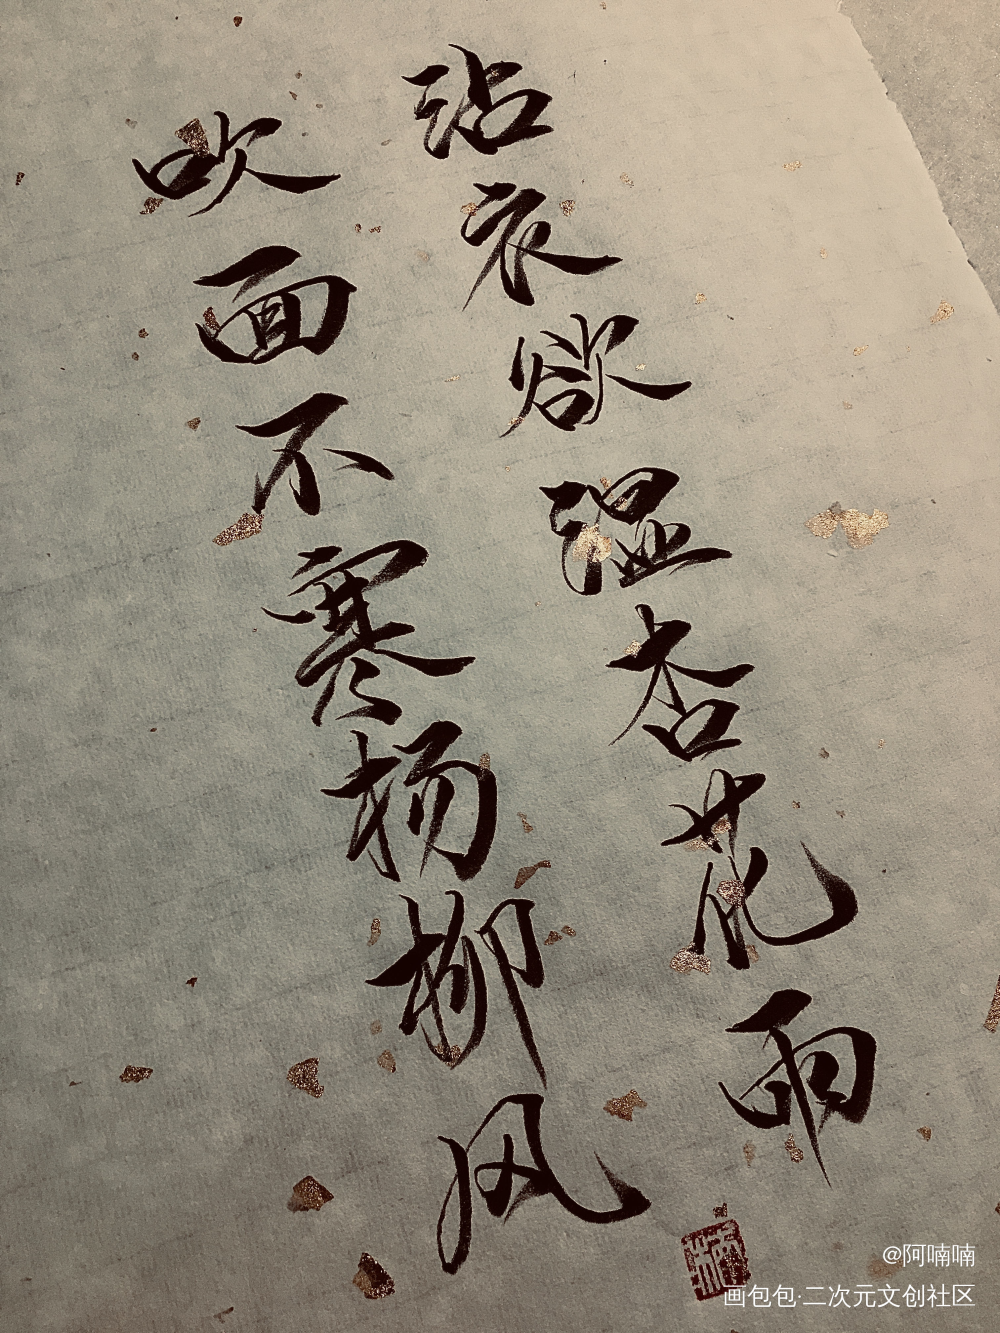 沾衣欲湿杏花雨
吹面不寒杨柳风
@阿喃喃
画包包·二次元文创社区